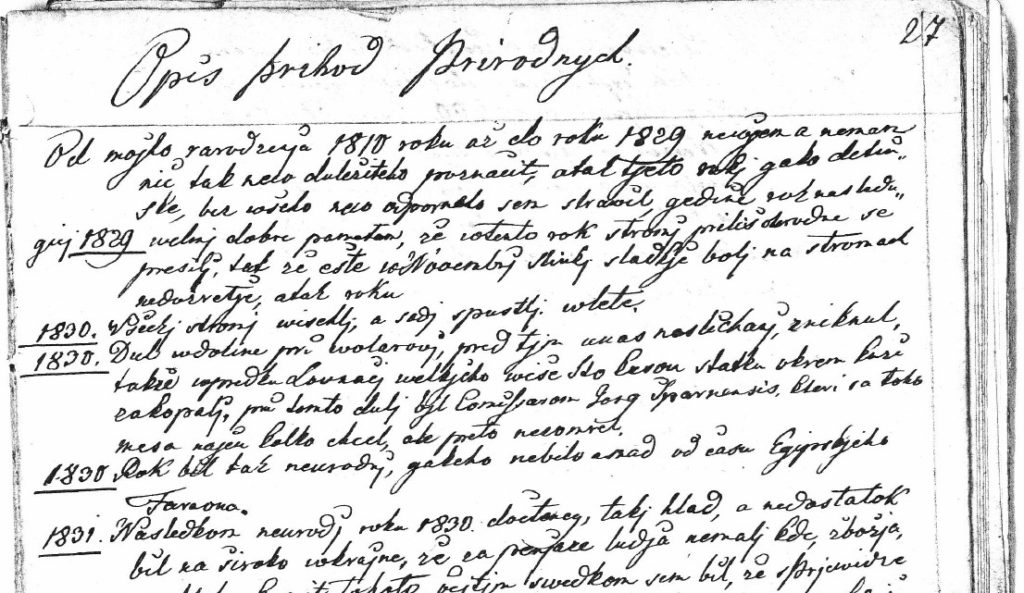 27
Opis Prihod Prirodnych.
Od mojho narodzenja 1810 roku až do roku 1829 neviem a nemam
nič tak neco duležiteho poznačit, atak tjeto rokj gako detin„
ske, bez wšeho neco odporneho sem strawil, gedine rok nasledu„
guj 1829 welmj dobre pamatam, že wtento rok stromj priliš se
presilj, tak že ešte w Novembrj sliwkj sladkje bolj na stromach
nedozretje, a tak roku
1830. Wšeckj stromj wisechlj, a sadj spustlj. wlete.
1830. Dub wdoline pri wolarovj, pred tjm unas neslichanj, zniknul,
takže welkjeho wiše sto kusou statku okrem kuži
zakopalj, pri tomto dulj bjl Comissarom Parnensis, kteri sa toho
mesa kolko chcel, ale preto nezomrel.
1830 Rok bil tak neurodnj, gakeho nebilo snad od času Egipskjeho
Faraona.
1831. Nasledkom neurodj roku 1830. takj hlad, a nedostatok
bil na široko wkrajne, že za penjaze ludja nemalj kde, zbožja,
swedkom sem bil, že